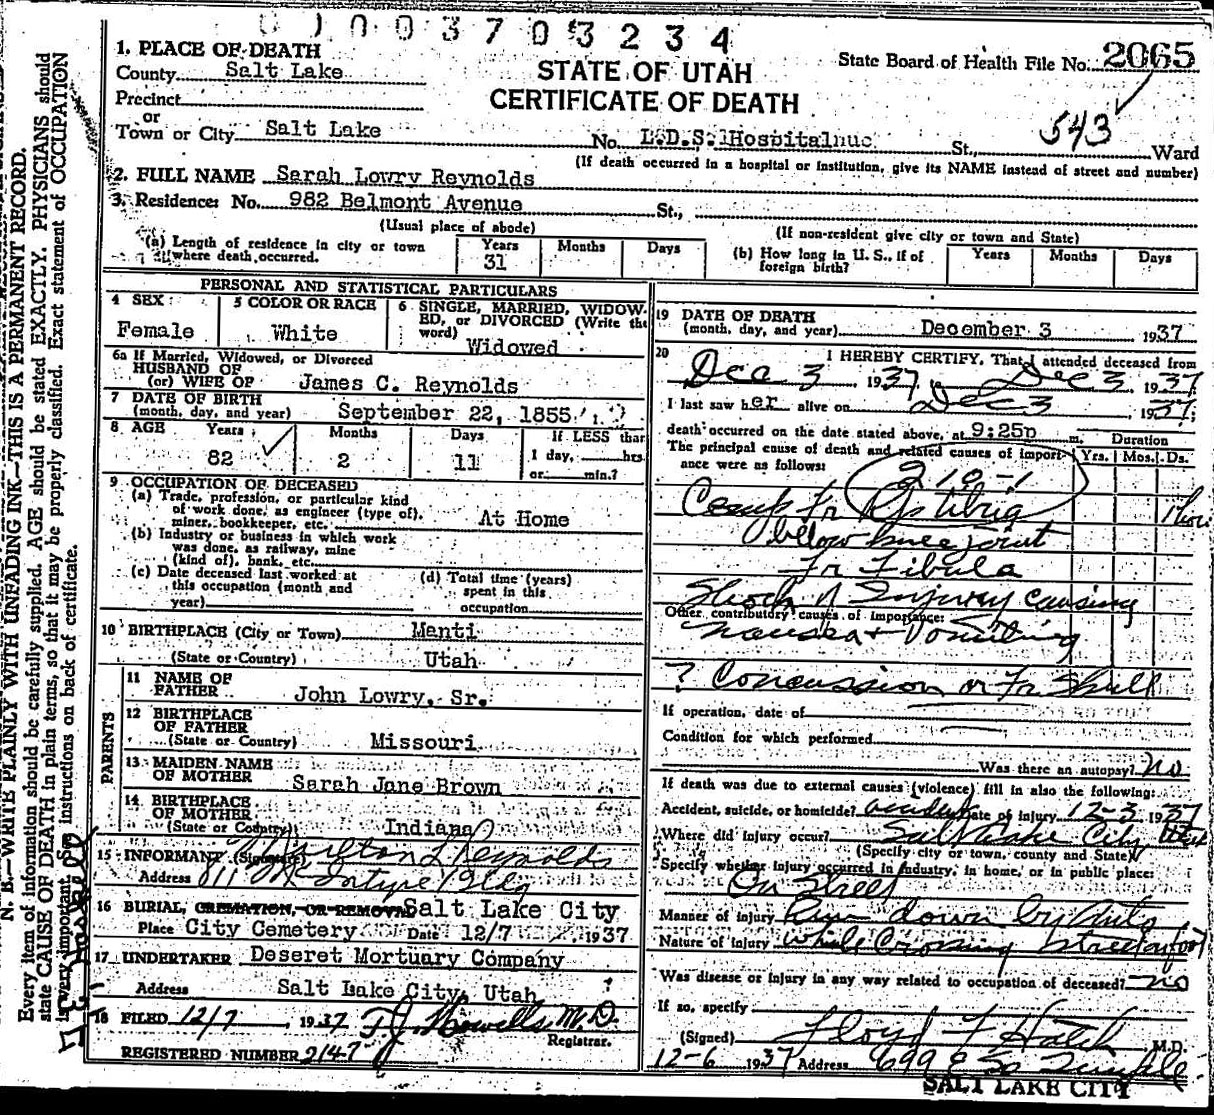 0 1 0 0 3 7 0 3 2 3 4
1. PLACE OF DEATH
County Salt Lake
Precinct
or
Town or City Salt Lake
STATE OF UTAH
CERTIFICATE OF DEATH
State Board of Health File No. 2065
543
No. L.D.S. Hospital St., Ward
(If death occurred in a hospital or institution, give its NAME instead of street and number)
2. FULL NAME Sarah Lowry Reynolds
3. Residence: No. 982 Belmont Avenue St.,
(Usual place of abode)
(If non-resident give city or town and State)
(a) Length of residence in city or town where death occurred. Years 31 Months Days
(b) How long in U. S., if of foreign birth? Years Months Days
PERSONAL AND STATISTICAL PARTICULARS
4 SEX Female
5 COLOR OR RACE White
6 SINGLE, MARRIED, WIDOWED, or DIVORCED (Write the word) Widowed
6a If Married, Widowed, or Divorced
HUSBAND OF
(or) WIFE OF James C. Reynolds
7 DATE OF BIRTH
(month, day, and year) September 22, 1855
8 AGE Years 82 Months 2 Days 11 If LESS than
1 day, hrs
or min.?
9 OCCUPATION OF DECEASED
(a) Trade, profession, or particular kind
of work done, as engineer (type of),
miner, bookkeeper, etc. At Home
(b) Industry or business in which work
was done, as railway, mine
(kind of), bank, etc.
(c) Date deceased last worked at
this occupation (month and
year)
(d) Total time (years)
spent in this
occupation
10 BIRTHPLACE (City or Town) Manti
(State or Country) Utah
PARENTS
11 NAME OF
FATHER John Lowry, Sr.
12 BIRTHPLACE
OF FATHER
(State or Country) Missouri
13 MAIDEN NAME
OF MOTHER Sarah Jane Brown
14 BIRTHPLACE
OF MOTHER
(State or Country) Indiana
15 INFORMANT (Signature) Reynolds
Address 811 McIntyre Bldg
16 BURIAL, CREMATION, OR REMOVAL Salt Lake City
Place City Cemetery Date 12/7 1937
17 UNDERTAKER Deseret Mortuary Company
Address Salt Lake City, Utah
18 FILED 12/7, 1937 T.J. Howells, M.D.
Registrar.
REGISTERED NUMBER 2147
19 DATE OF DEATH
(month, day, and year) December 3 1937
20 I HEREBY CERTIFY, That I attended deceased from
Dec 3 1937, Dec 3, 1937
I last saw her alive on Dec 3, 1937;
death occurred on the date stated above, at 9:25p m.
The principal cause of death and related causes of importance were as follows:
Duration
Yrs. Mos. Ds.
210-1
Comp fr Rt tibia
bellow knee joint
Fr Fibula
Shock of Injury causing
Other contributory causes of importance:
nausea + Vomiting
? Concussion or Fr Skull
If operation, date of
Condition for which performed
Was there an autopsy? no
If death was due to external causes (violence) fill in also the following:
Accident, suicide, or homicide? accident Date of injury 12-3 1937
Where did injury occur? Salt Lake City Utah
(Specify city or town, county and State)
Specify whether injury occurred in industry, in home, or in public place:
On Street
Manner of injury Run down by Auto
Nature of Injury While Crossing street afoot
Was disease or injury in any way related to occupation of deceased? no
If so, specify
(Signed) Floyd F Hatch M.D.
12-6 1937 Address 699 E So Temple
SALT LAKE CITY
N. B.—WRITE PLAINLY WITH UNFADING INK—THIS IS A PERMANENT RECORD.
Every item of information should be carefully supplied. AGE should be stated EXACTLY. PHYSICIANS should
state CAUSE OF DEATH in plain terms, so that it may be properly classified. Exact statement of OCCUPATION
is very important. See instructions on back of certificate.